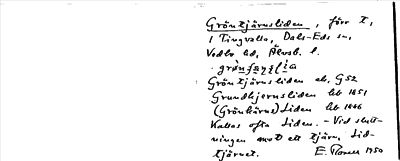 Gröntjärnsliden, förr t,
1 Tingvalla, Dals-Eds sn,
Vedbo hd, Älvsb. l.
Gröntjärnsliden ek. G52
Grundkjernsliden lht 1851
(Grönkärns) Liden lht 1866
Kallas ofta Liden. - Vid slutt-
ningen mot ett tjärn, Lid-
tjärnet. E. 1950